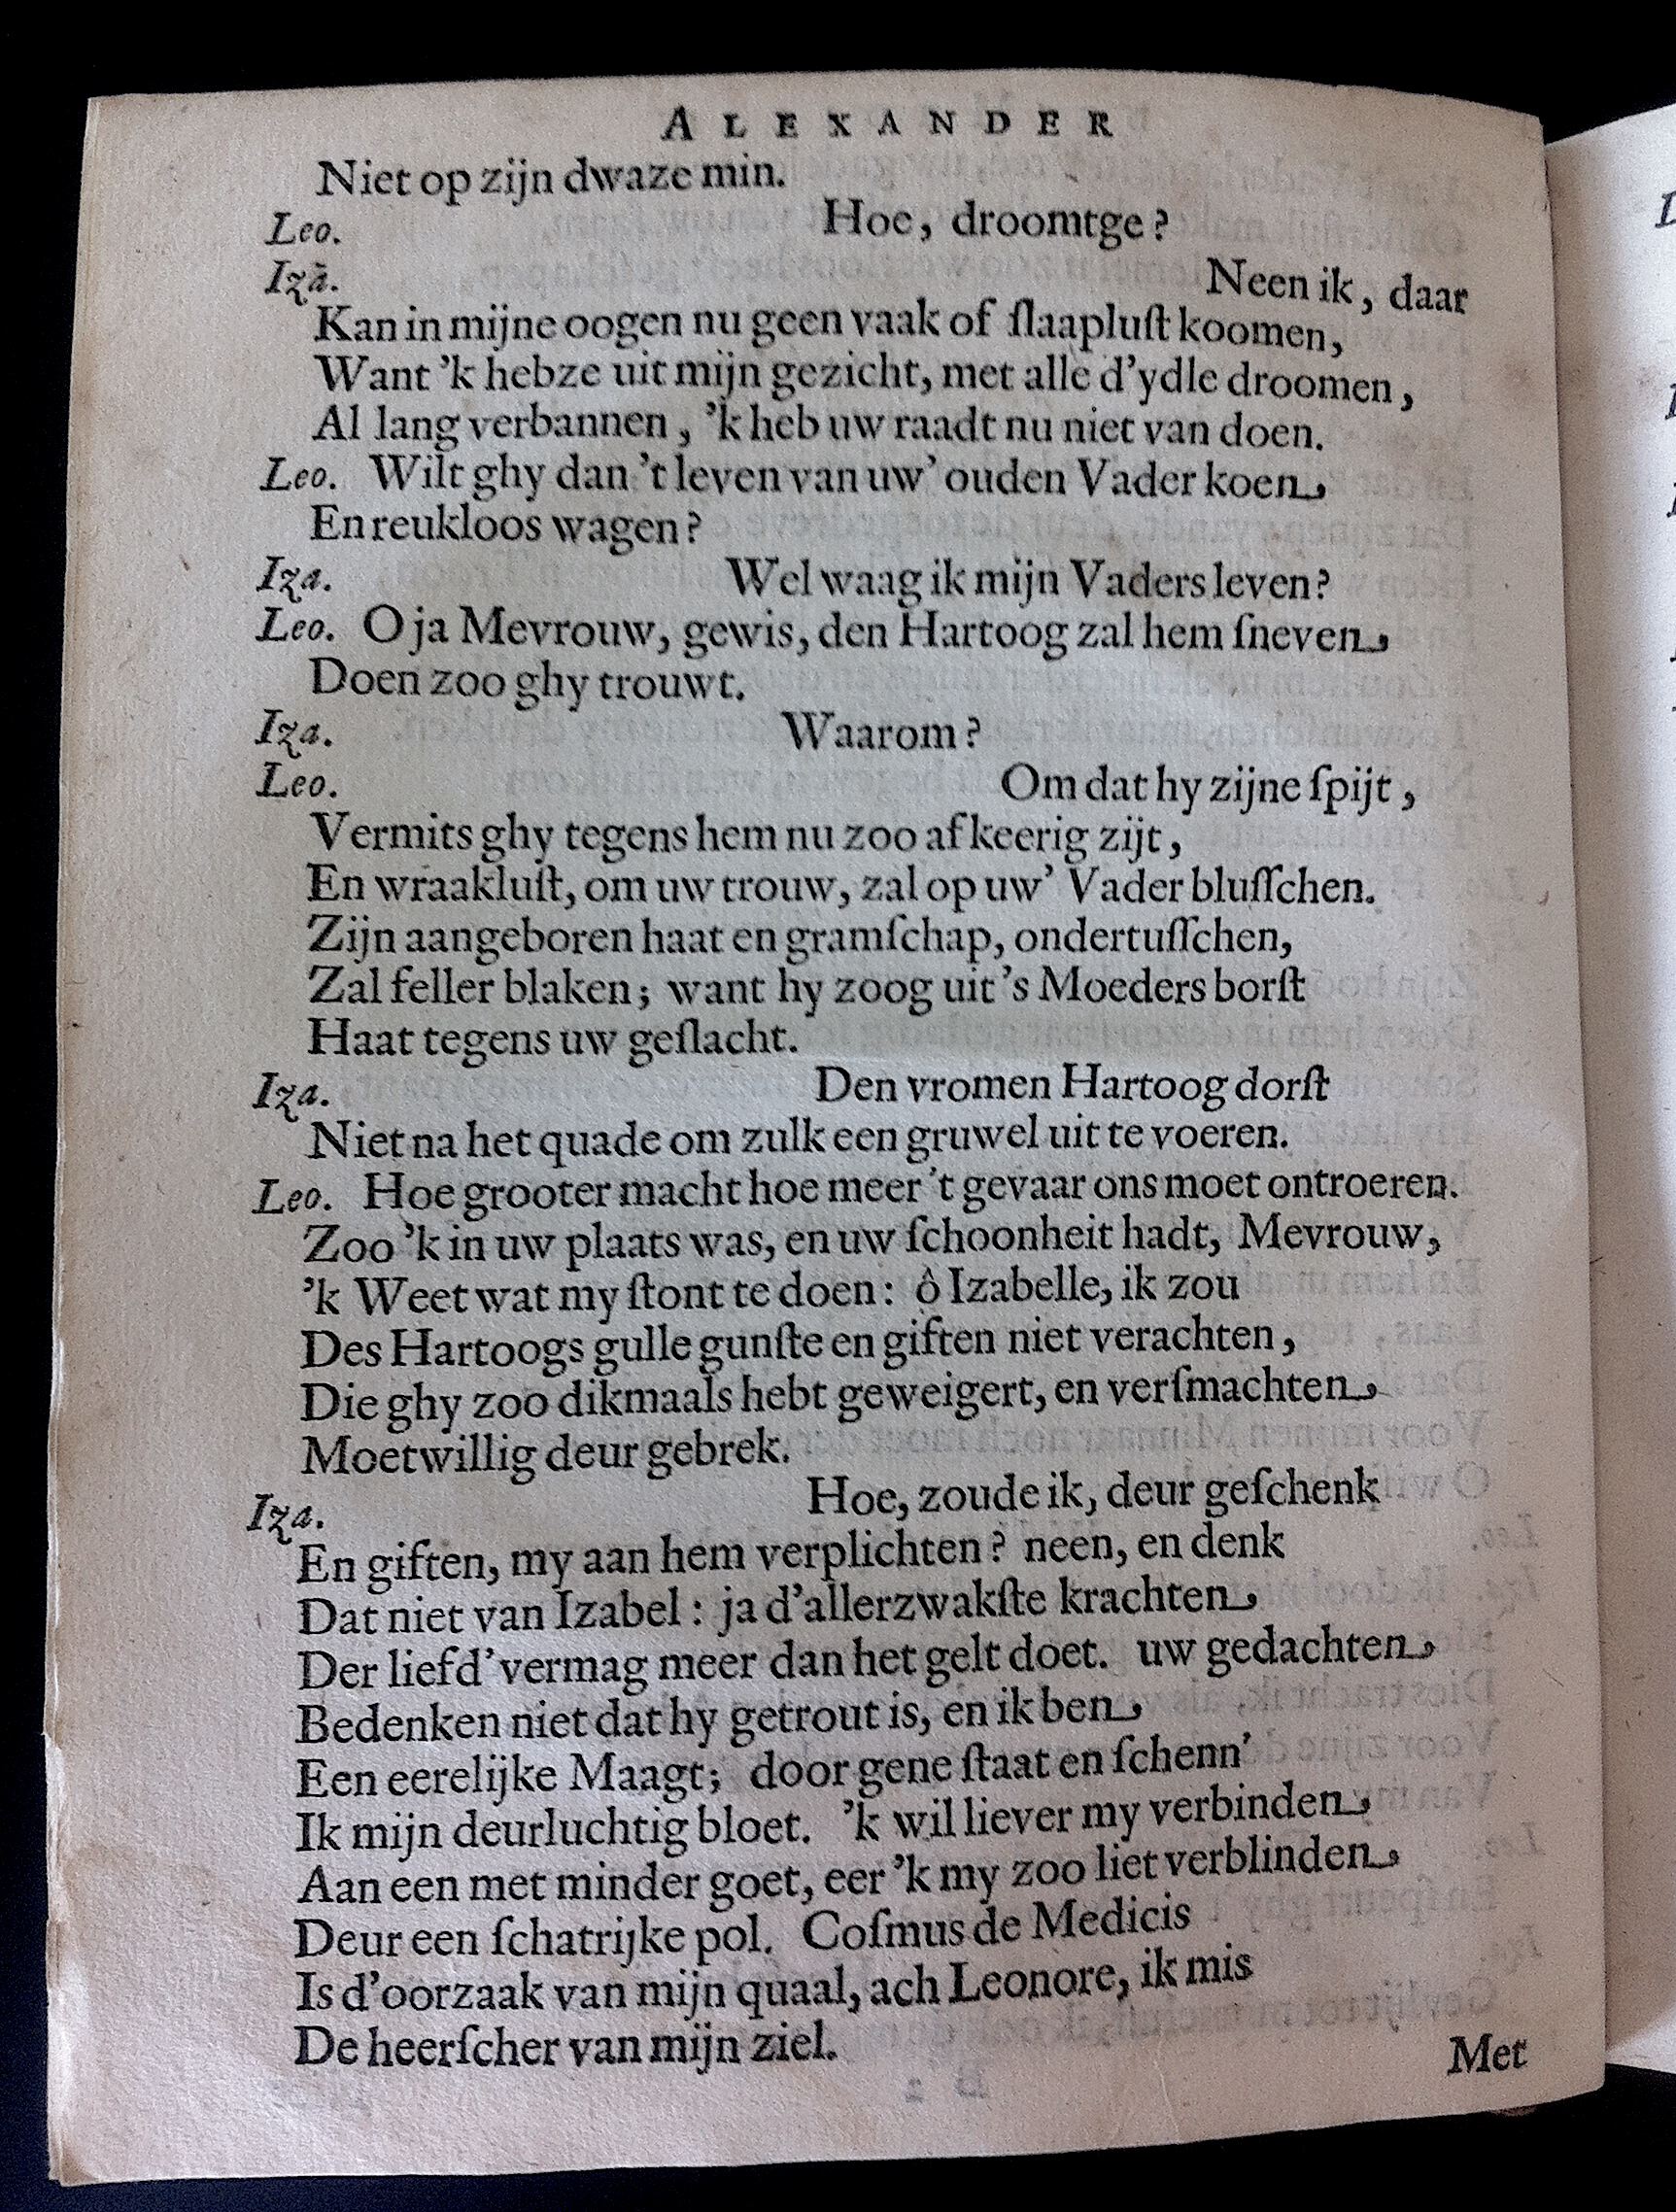 ALEXANDER
Niet op zijn dwaze min.
Leo. Hoe, droomtge?
Iza. Neen ik, daar
Kan in mijne oogen nu geen vaak of ſlaapluſt koomen,
Want 'k hebze uit mijn gezicht, met alle d'ydle droomen,
Al lang verbannen, 'k heb uw raadt nu niet van doen.
Leo. Wilt ghy dan 't leven van uw' ouden Vader koen
En reukloos wagen?
Iza. Wel waag ik mijn Vaders leven?
Leo. O ja Mevrouw, gewis, den Hartoog zal hem ſneven
Doen zoo ghy trouwt.
Iza. Waarom?
Leo. Om dat hy zijne ſpijt,
Vermits ghy tegens hem nu zoo afkeerig zijt,
En wraakluſt, om uw trouw, zal op uw' Vader bluſſchen.
Zijn aangeboren haat en gramſchap, ondertuſſchen,
Zal feller blaken; want hy zoog uit 's Moeders borſt
Haat tegens uw geſlacht.
Iza. Den vromen Hartoog dorſt
Niet na het quade om zulk een gruwel uit te voeren.
Leo. Hoe grooter macht hoe meer 't gevaar ons moet ontroeren.
Zoo 'k in uw plaats was, en uw ſchoonheit hadt, Mevrouw,
'k Weet wat my ſtont te doen: ô Izabelle, ik zou
Des Hartoogs gulle gunſte en giften niet verachten,
Die ghy zoo dikmaals hebt geweigert, en verſmachten
Moetwillig deur gebrek.
Iza. Hoe, zoude ik, deur geſchenk
En giften, my aan hem verplichten? neen, en denk
Dat niet van Izabel: ja d'allerzwakſte krachten
Der liefd' vermag meer dan het gelt doet. uw gedachten
Bedenken niet dat hy getrout is, en ik ben
Een eerelijke Maagt; door gene ſtaat en ſchenn'
Ik mijn deurluchtig bloet. 'k wil liever my verbinden
Aan een met minder goet, eer 'k my zoo liet verblinden
Deur een ſchatrijke pol. Coſmus de Medicis
Is d'oorzaak van mijn quaal, ach Leonore, ik mis
De heerſcher van mijn ziel.
Met